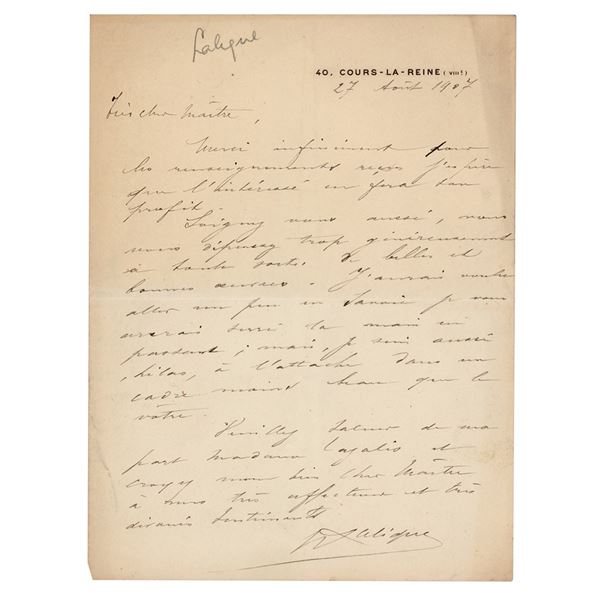 Lalique
40, COURS-LA-REINE (VIIIe)
27 Août 1907
Très cher Maître,
Merci infiniment pour
les renseignements reçus j'espère
que l'intéressé en fera son
profit.
Soignez vous aussi, vous
vous dépensez trop généreusement
à toute sorte de belles et
bonnes œuvres. J'aurais voulu
aller un peu en Savoie je vous
aurais serré la main en
passant ; mais, je suis aussi
, hélas, à l'attache dans un
cadre moins beau que le
vôtre.
Veuillez saluer de ma
part Madame et
croyez mon bien cher Maître
à mes très affectueux et très
dévoués sentiments
R Lalique